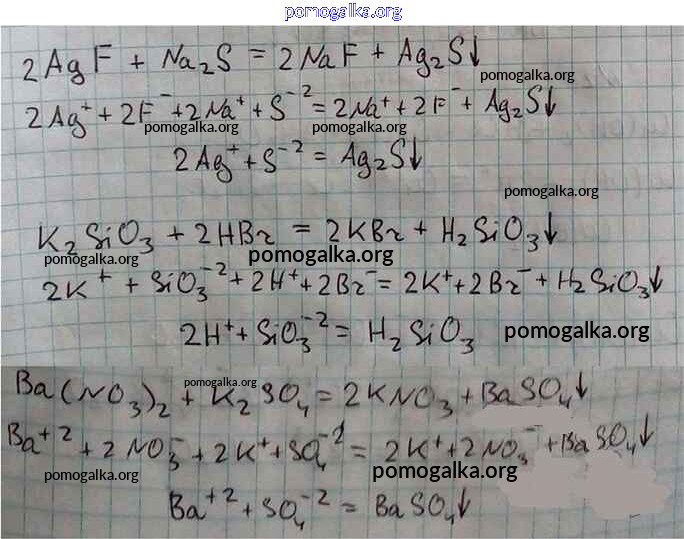 pomogalka.org
2AgF + Na₂S = 2NaF + Ag₂S↓
pomogalka.org
2Ag⁺ + 2F⁻ + 2Na⁺ + S⁻² = 2Na⁺ + 2F⁻ + Ag₂S↓
pomogalka.org pomogalka.org
2Ag⁺ + S⁻² = Ag₂S↓
pomogalka.org
K₂SiO₃ + 2HBr = 2KBr + H₂SiO₃↓
pomogalka.org pomogalka.org
2K⁺ + SiO₃⁻² + 2H⁺ + 2Br⁻ = 2K⁺ + 2Br⁻ + H₂SiO₃↓
2H⁺ + SiO₃⁻² = H₂SiO₃ pomogalka.org
pomogalka.org
Ba(NO₃)₂ + K₂SO₄ = 2KNO₃ + BaSO₄↓
Ba⁺² + 2NO₃⁻ + 2K⁺ + SO₄⁻² = 2K⁺ + 2NO₃⁻ + BaSO₄↓
pomogalka.org pomogalka.org
Ba⁺² + SO₄⁻² = BaSO₄↓